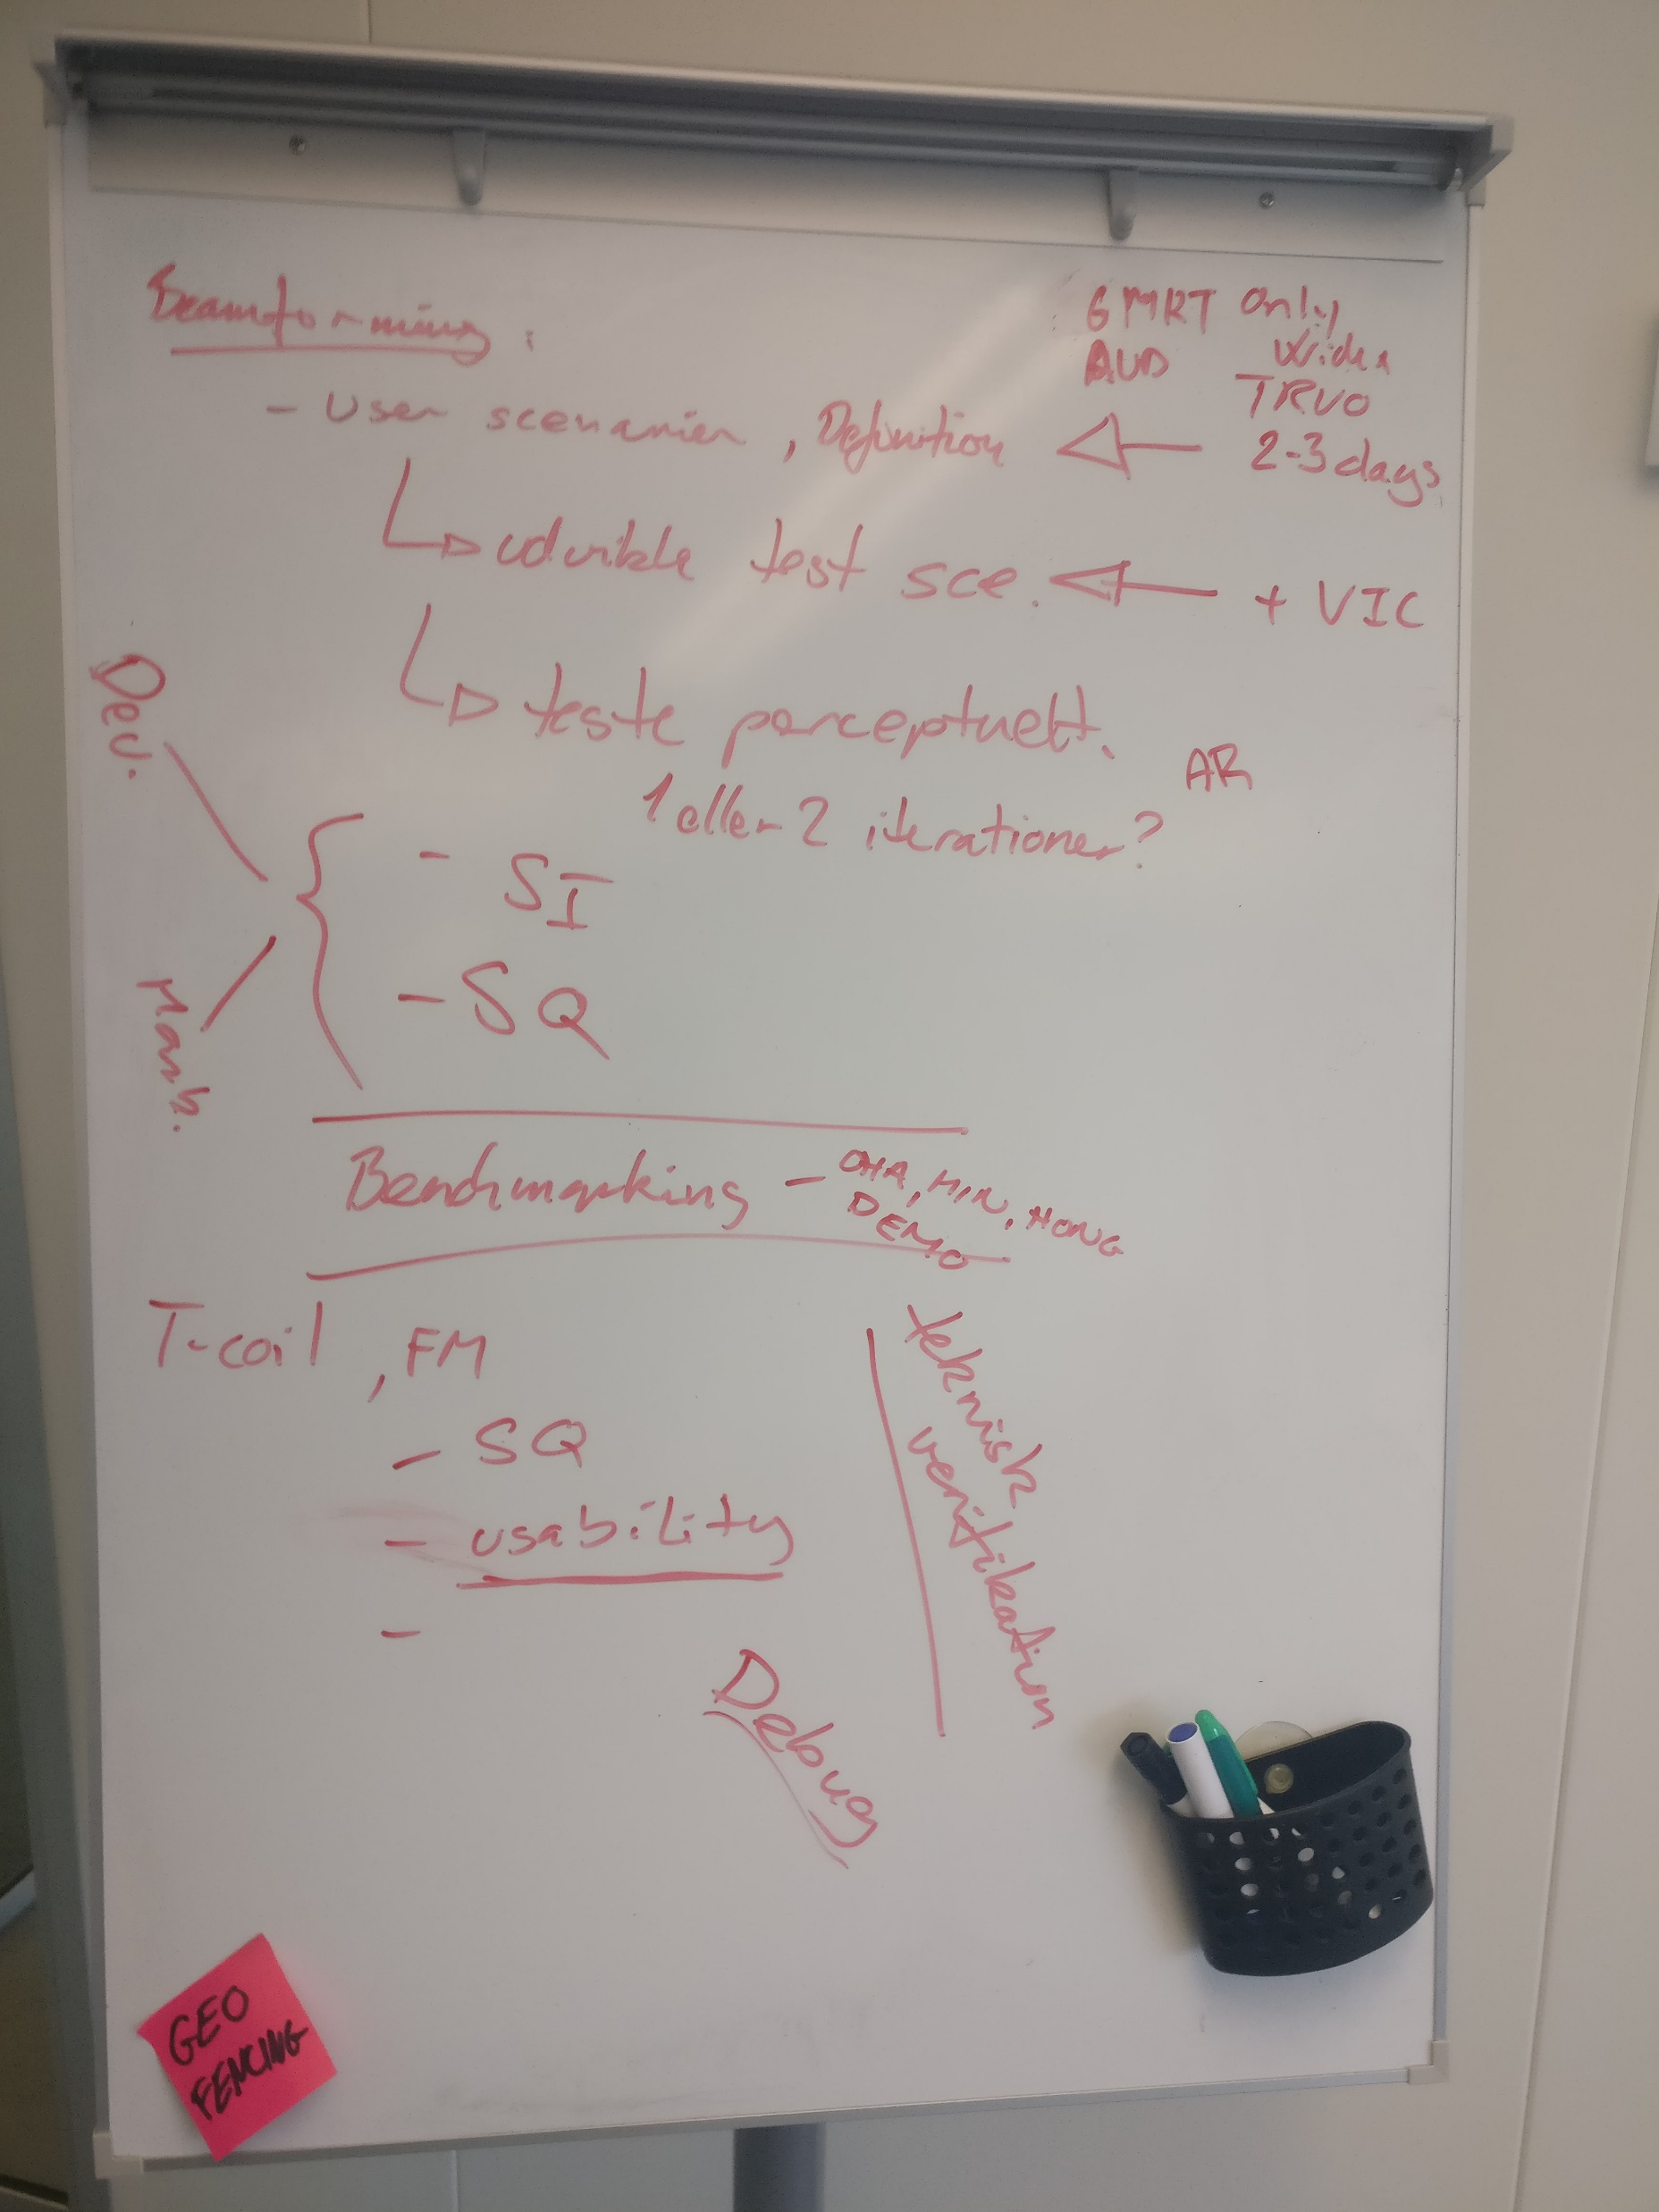 Beamforming:
GMRT Only
AUD Widex
TRVO
- User scenarier, Definition
2-3 days
udvikle test sce.
+ VIC
teste perceptuelt.
AR
1 eller 2 iterationer?
Dev.
- SI
- SQ
Benchmarking - CHA, MIN, HONG
DEMO
T-coil, FM
- SQ
- usability
-
teknisk
verifikation
Debug
GEO
FENCING